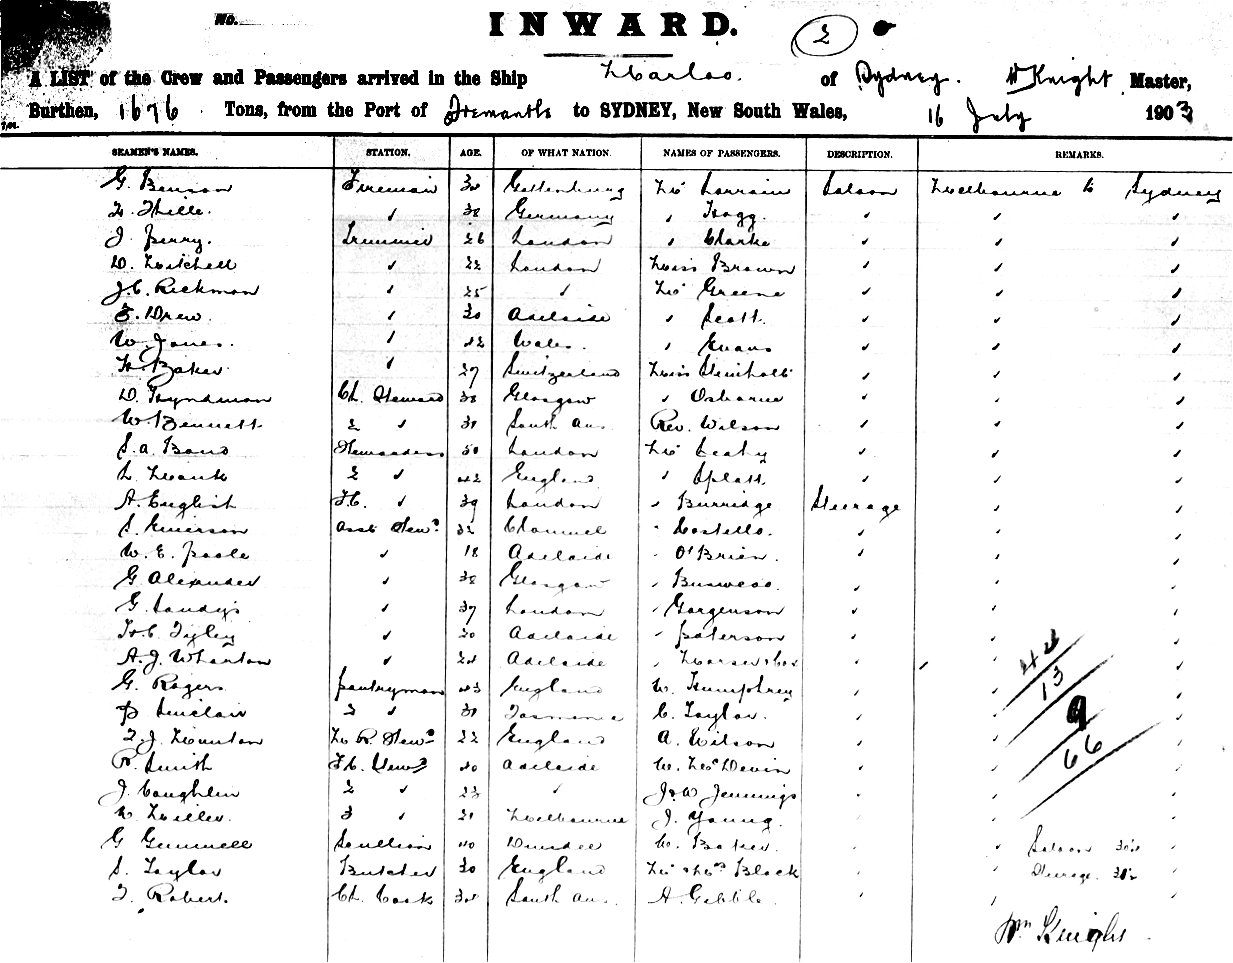 No.
INWARD.
2
A LIST of the Crew and Passengers arrived in the Ship Marloo. of Sydney. W Knight Master,
Burthen, 1676 Tons, from the Port of Fremantle to SYDNEY, New South Wales, 16 July 1903
SEAMEN'S NAMES. STATION. AGE. OF WHAT NATION. NAMES OF PASSENGERS. DESCRIPTION. REMARKS.
G. Benson Fireman Gottenburg Mr Lorrain Saloon Melbourne to Sydney
Thille. " 38 Germany " Hogg. " " "
J. Perry. Trimmer 26 London " Clarke " " "
D. Mitchell " 22 London Miss Brown " " "
J.C. Rickman " 25 " Mr Greene " " "
F. Drew. " 20 Adelaide " Scott. " " "
W. Jones. " 42 Wales. " Evans " " "
H. Baker " 27 Switzerland Miss " " "
D. Hyndman Ch. Steward 38 Glasgow " Osborne " " "
W. Bennett 2 " South Aus. Rev. Wilson " " "
S.A. Band Stewardess 50 London Mr Leahy " " "
L. 2 " 42 England " Splatt " " "
A. English F.C. " 39 London " Burridge Steerage " "
S. Emerson Asst Stewd 32 Channel " Costello. " " "
W. E. Poole " 18 Adelaide " O'Brien. " " "
G. Alexander " 38 Glasgow " " " "
G. Sandys " 37 London " Gorgenson " " "
H.C. Tyley " 20 Adelaide " Paterson " " "
A. J. Wharton " Adelaide " " " "
G. Rogers Pantryman 43 England W. Humphrey " " "
P Sinclair 2 " C. Taylor. " " "
F. J. M. R. Stewd 22 England A. Wilson " " "
R. Smith F.C. Stewd 40 Adelaide W. McDevin " " "
J. Coughlin 2 " 23 " J. W. Jennings " " "
W Miller. 3 " 21 Melbourne J. Young. " " "
G Gemmell Scullion 40 Dundee W. Baker. " "
S. Taylor Butcher 30 England Mr & Mrs Black " "
F. Robert Ch. Cook South Aus. A. Gebble. " " "
13
9
66
Saloon
Steerage
Wm Knight